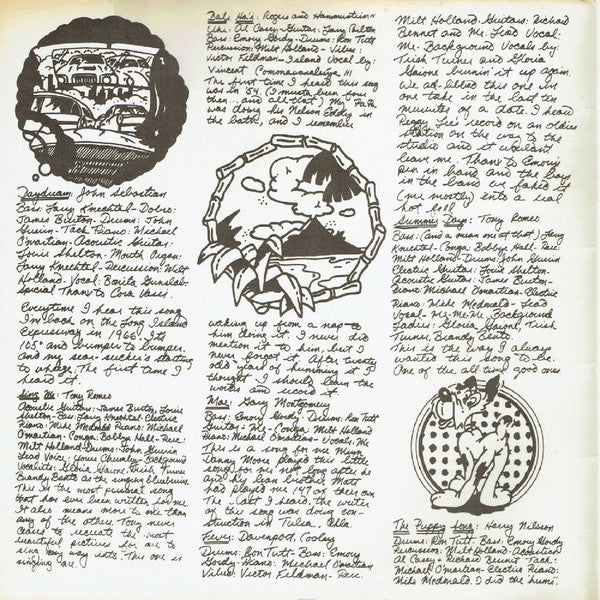 Daydream: John Sebastian
Bass: Larry Knechtel - Dobro:
James Burton - Drums: John
Guerin - Tack Piano: Michael
Omartian - Acoustic Guitar:
Louie Shelton - Mouth Organ:
Larry Knechtel - Percussion: Milt
Holland - Vocal: Bonita
Special Thanks to Cora Vassi.
Everytime I hear this song
I'm back on the Long Island
Expressway in 1966. It's
105° and bumper to bumper
and my seer-sucker's starting
to The first time I
heard it.
Sing Me: Tony Romeo
Acoustic Guitar: James Burton, Louie
Shelton - Bass: Larry Knechtel Electric
Piano: Mike McDonald Piano: Michael
Omartian - Conga: Bobbye Hall - Perc:
Milt Holland - Drums: John Guerin
Lead Voice: Background
Vocalists: Gloria Turner
Brandy as the
This is the most personal song
that has ever been written for me.
It also means more to me than
any of the others. Tony never
ceases to create the most
beautiful pictures for me to
sing my way into. This one is
singing
Bali Ha'i: Rogers and Hammerstein
Uke: Al Casey - Guitar: Larry Carlton
Bass: Emory Gordy - Drums: Ron Tutt
Percussion: Milt Holland - Vibes:
Victor Feldman - Island Vocal by
Vincent !!!
The first time I heard this song
was in '54. (I must've been seven
then... and all that) My Pa Pa
was doing his Nelson Eddy in
the bath, and I remember
waking up from a nap to
him doing it. I never did
mention it to him, but I
never forgot it. After twenty
odd years of humming it I
thought I should learn the
words and record it
Mae: Gary Montgomery
Bass: Emory Gordy - Drums: Ron Tutt
Guitar - Me - Conga: Milt Holland
Piano: Michael Omartian - Vocals: Me
This is a song for me Mum
Danny Moore played this little
song for me not long after he
and his lean brother Matt
had played me 147 of their own.
The last I heard the writer
of this song was doing con-
struction in Tulsa, Okla.
Fever: Davenport, Cooley
Drums: Ron Tutt - Bass: Emory
Gordy - Piano: Michael Omartian
Vibes: Victor Feldman - Perc:
Milt Holland - Guitars: Richard
Bennet and Me. Lead Vocal:
Me: Background Vocals by:
Trish Turner and Gloria
burnin' it up again.
We ad-libbed this one in
one take in the last ten
minutes of a date. I heard
Peggy Lee's record on an oldies
station on the way to the
studio and it wouldn't
leave me. Thanx to Emory's
pen in hand and the boys
in the band we faked it
(me mostly) into a real
hot
Summer Days: Tony Romeo
Bass: (and a mean one at that) Larry
Knechtel - Conga: Bobbye Hall - Perc:
Milt Holland - Drums: John Guerin
Electric Guitar: Louie Shelton -
Acoustic Guitar: James Burton -
Piano: Michael Omartian - Electric
Piano: Mike McDonald - Lead
Vocal - Me - Me - Me. Background
Ladies: Gloria Trish
Turner, Brandy
This is the way I always
wanted this song to be.
One of the all time good ones
The Puppy Song: Harry Nilsson
Drums: Ron Tutt - Bass: Emory Gordy
Percussion: Milt Holland - Acoustics:
Al Casey - Richard Bennett Tack:
Michael Omartian - Electric Piano:
Mike McDonald. I did the 'hums'.